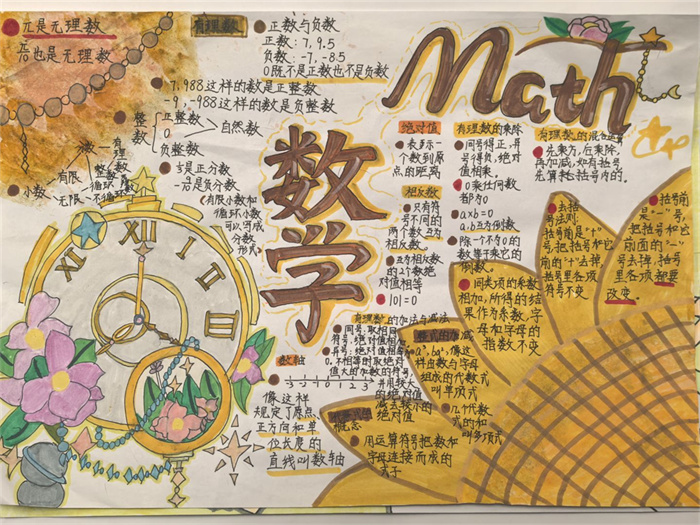 π是无理数
也是无理数
有理数
正数与负数
正数:7,9.5
负数:-7,-8.5
0既不是正数也不是负数
7,988这样的数是正整数
-9,-988这样的数是负整数
整数
正整数
0
自然数
负整数
小数
有限
无限
循环
不循环
有理数
是正分数
是负分数
(有限小数和
循环小数
可以写成
分数
形式)
XI
XII
I
II
III
数学
Math
绝对值
表示一
个数到原
点的距离
相反数
只有符
号不同的
两个数互为
相反数。
互为相反数
的2个数绝
对值相等
|0|=0
有理数的乘除
同号得正,异
号得负,绝对
值相乘。
0乘任何数
都为0
a×b=0
a.b互为倒数
除一个不为0的
数等于乘它的
倒数。
同类项的系数
相加,所得的结
果作为系数,字
母和字母的
指数不变
有理数的混合运算
先乘方,后乘除,
再加减,如有括号
先算括号内的。
去括
号法则:
括号前是"+"
号,把括号和它
前面的"+"去掉,括
号里各项
符号不变
括号前
是"-"号,
把括号和它
前面的"-"
号去掉,括号
里各项都要
改变。
有理数的加法与减法
同号,取相同
符号,绝对值相加
异号:绝对值相等和为
0,不相等时取绝对
值大的加数的符号,
并用较大
的绝对值
减去较小的
绝对值
数轴
-3 -2 -1 0 1 2 3
像这样
规定了原点、
正方向和单
位长度的
直线叫数轴
概念
用运算符号把数和
字母连接而成的
式子
整式的加减
像这
样由数与字母
组成的代数式
叫单项式
几个代数
式的和
叫多项式